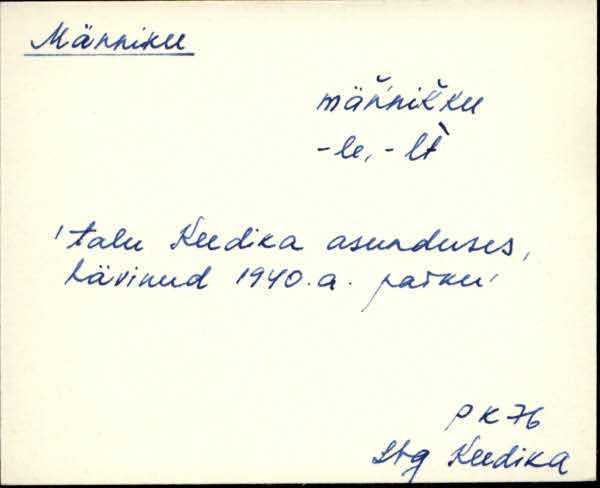 Männiku
männikku
-le, -lt
'talu Keedika asunduses,
hävinud 1940. a. paiku'
PK76
Ltg Keedika